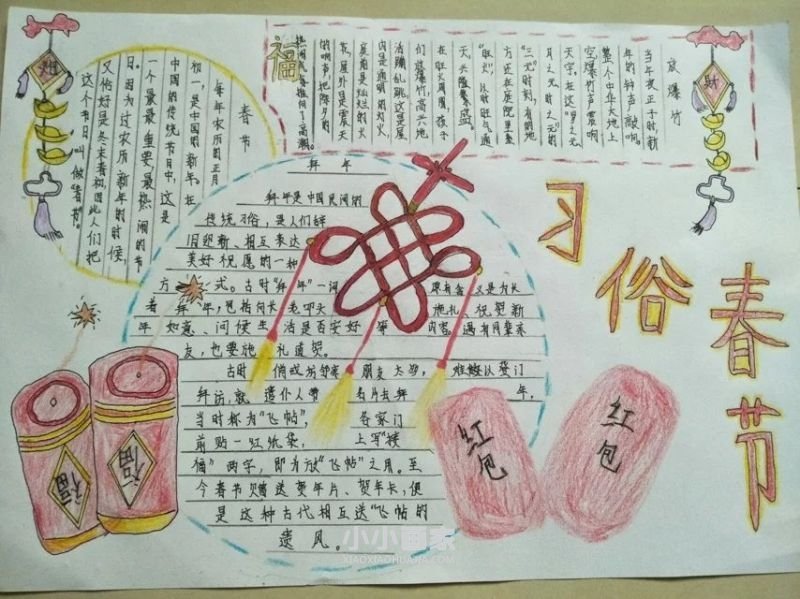 春节
习俗
放爆竹
当午夜正子时新
年的钟声敲响,
整个中华大地上
空,爆竹声震响
天宇。在这"岁之元、
月之元、时之元"的
"三元"时刻,有的地
方还在庭院里垒
"旺火",以示旺气通
天,兴隆繁盛。
在旺火周围,孩子
们放爆竹,高兴地
活蹦乱跳,这是屋
内是通明的灯火,
庭前是灿烂的火
花,屋外是震天
的响声,把除夕的
热闹气氛推向了高潮。
福
财
春节
每年农历的正月
初一,是中国的新年。在
中国的传统节日中,这是
一个最最重要最热闹的节
日。因为过农历新年的时候,
又恰好是冬末春初,因此人们把
这个节日叫做"春节"。
拜年
拜年是中国民间的
传统习俗,是人们辞
旧迎新、相互表达
美好祝愿的一种
方式。古时"拜年"一词 原有含 义是为长
者拜年,包括向长 者叩头 施礼、祝贺新
年如意、问候生 活是否安好等 内容。遇有同辈亲
友,也要施 礼道贺。
古时 倘或坊邻亲 朋友太多, 难以登门
拜访,就 遣仆人带 名片去拜 年,
当时称为"飞帖", 各家门
前贴一红纸袋, 上写"接
福"两字,即为放"飞帖"之用。至
今春节赠送贺年片、贺年卡,便
是这种古代相互送"飞帖的
遗风。
福
福
红包
红包
小小画家
XIAOXIAOHUAJIA.COM